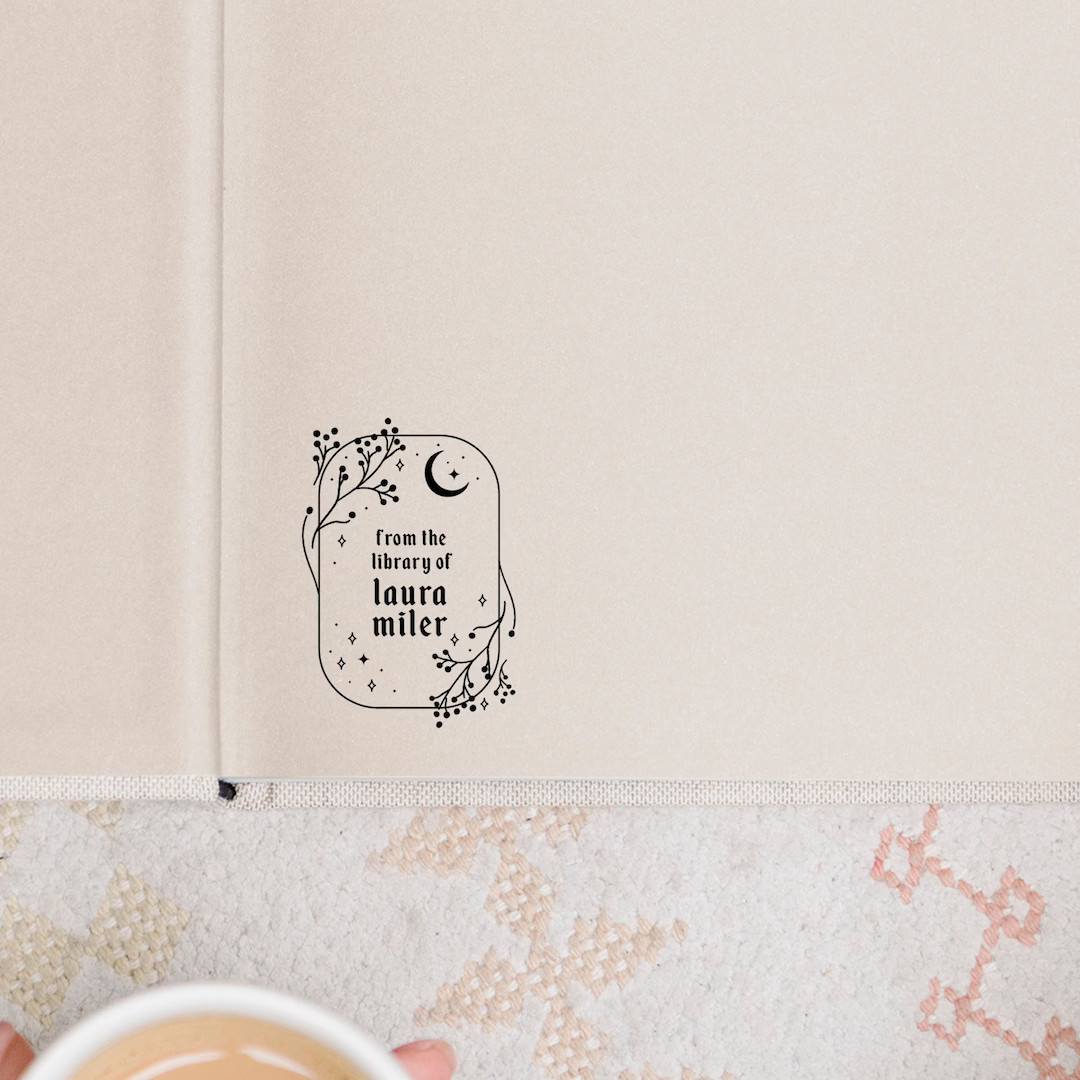 from the
library of
laura
miler